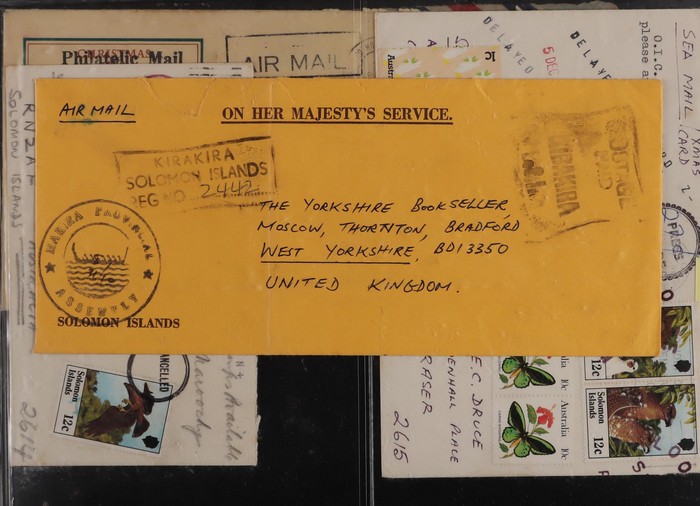 CHRISTMAS
Philatelic Mail
AIR MAIL
Australia
1c
DELAYED
5 DEC
DELAYED
O.I.C.
please a
SEA MAIL
XMAS
CARD
AIR MAIL
ON HER MAJESTY'S SERVICE.
KIRAKIRA
SOLOMON ISLANDS
REG NO. 2442
POSTAGE
PAID
KIRAKIRA
THE YORKSHIRE BOOKSELLER,
MOSCOW, THORNTON, BRADFORD
WEST YORKSHIRE, BD13350
UNITED KINGDOM.
MAKIRA PROVINCIAL
ASSEMBLY
SOLOMON ISLANDS
SOLOMON ISLANDS
Solomon
Islands
12c
CANCELLED
Available
Maroochy
2614
E.C. DRUCE
DENHALL PLACE
FRASER
2615
Australia 10c
Australia 10c
Solomon
Islands
12c
12c